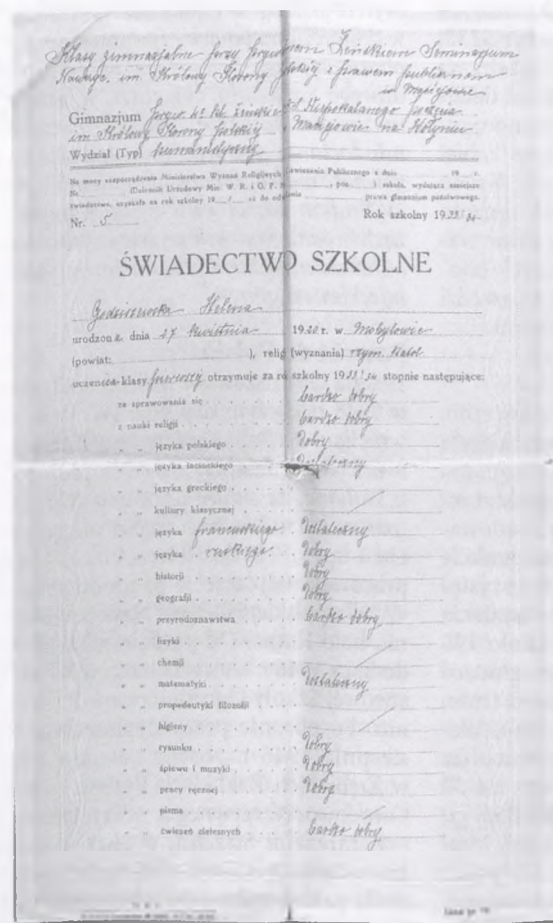 Klasy gimnazjalne przy Prywatnem Żeńskiem Seminarjum
Naucz. im. Królowej Korony Polskiej z prawem publiczności
w Maciejowie
Gimnazjum Niepokalanego Poczęcia
im. Królowej Korony Polskiej w Maciejowie na Wołyniu
Wydział (Typ) humanistyczny
Na mocy rozporządzenia Ministerstwa Wyznań Religijnych Oświecenia Publicznego z dnia 19 r.
Nr. (Dziennik Urzędowy Min. W. R. i O. P. N , poz. ) szkoła, wydająca niniejsze
świadectwo, uzyskała na rok szkolny 19 / prawa gimnazjum państwowego.
Nr. 5 Rok szkolny 1933/34
ŚWIADECTWO SZKOLNE
Godziszewska Helena
urodzona dnia 27 kwietnia 1920 r. w Mobytowie
(powiat: ), relig (wyznania) rzym. katol.
uczenica klasy pierwszej otrzymuje za rok szkolny 1933/34 stopnie następujące:
ze sprawowania się bardzo dobry
z nauki religji bardzo dobry
" " języka polskiego dobry
" " języka łacińskiego dostateczny
" " języka greckiego
" " kultury klasycznej
" " języka francuskiego dostateczny
" " języka ruskiego dobry
" " historji dobry
" " geografji dobry
" " przyrodoznawstwa bardzo dobry
" " fizyki
" " chemji
" " matematyki dostateczny
" " propedeutyki filozofji
" " higjeny
" " rysunku dobry
" " śpiewu i muzyki dobry
" " pracy ręcznej dobry
" " pisma
" " ćwiczeń cielesnych bardzo dobry